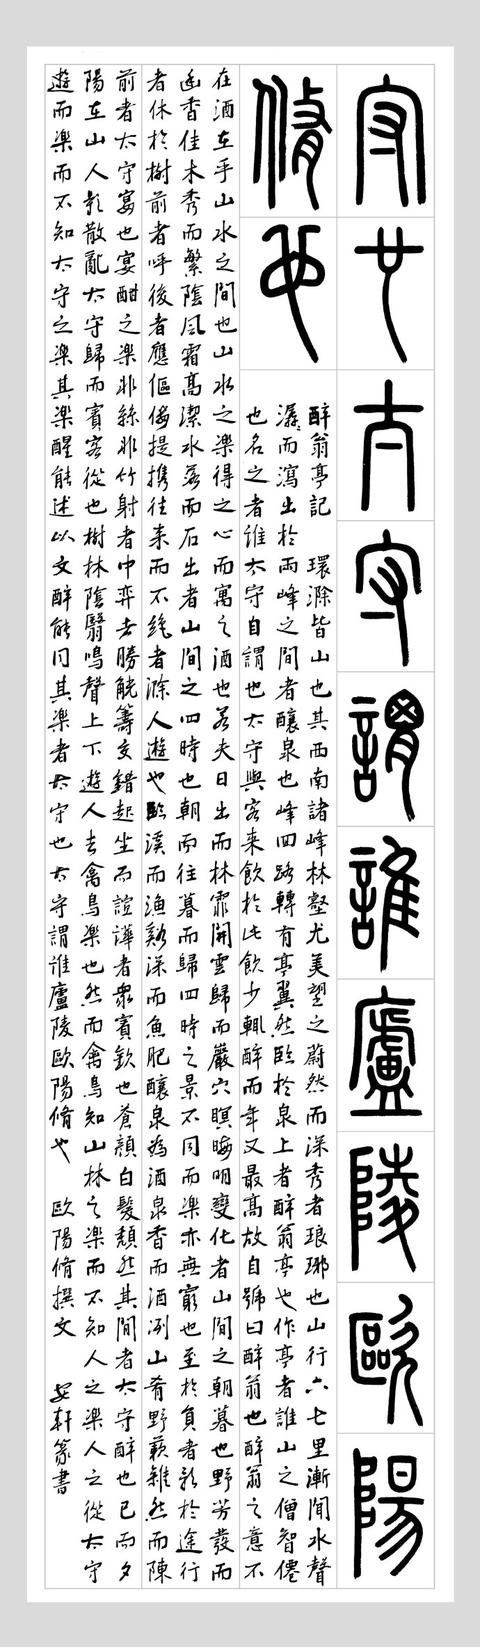 守也太守謂誰廬陵歐陽
脩也
醉翁亭記 環滁皆山也其西南諸峰林壑尤美望之蔚然而深秀者琅琊也山行六七里漸聞水聲
潺〻而瀉出於兩峰之間者釀泉也峰回路轉有亭翼然臨於泉上者醉翁亭也作亭者誰山之僧智僊
也名之者誰太守自謂也太守與客来飲於此飲少輒醉而年又最高故自號曰醉翁也醉翁之意不
在酒在乎山水之間也山水之楽得之心而寓之酒也若夫日出而林霏開雲歸而巖穴暝晦明變化者山間之朝暮也野芳發而
幽香佳木秀而繁陰風霜高潔水落而石出者山間之四時也朝而往暮而歸四時之景不同而楽亦無窮也至於負者歌於途行
者休於樹前者呼後者應傴僂提携往来而不絶者滁人遊也臨溪而漁谿深而魚肥釀泉為酒泉香而酒冽山肴野蔌雜然而陳
前者太守宴也宴酣之楽非絲非竹射者中弈者勝觥籌交錯起坐而諠譁者衆賓歡也蒼顔白髮頹然其間者太守醉也已而夕
陽在山人影散亂太守歸而賓客從也樹林陰翳鳴聲上下遊人去禽鳥楽也然而禽鳥知山林之楽而不知人之楽人之從太守
遊而楽而不知太守之楽其楽醒能述以文醉能同其楽者太守也太守謂誰廬陵歐陽脩也 歐陽脩撰文 安軒篆書